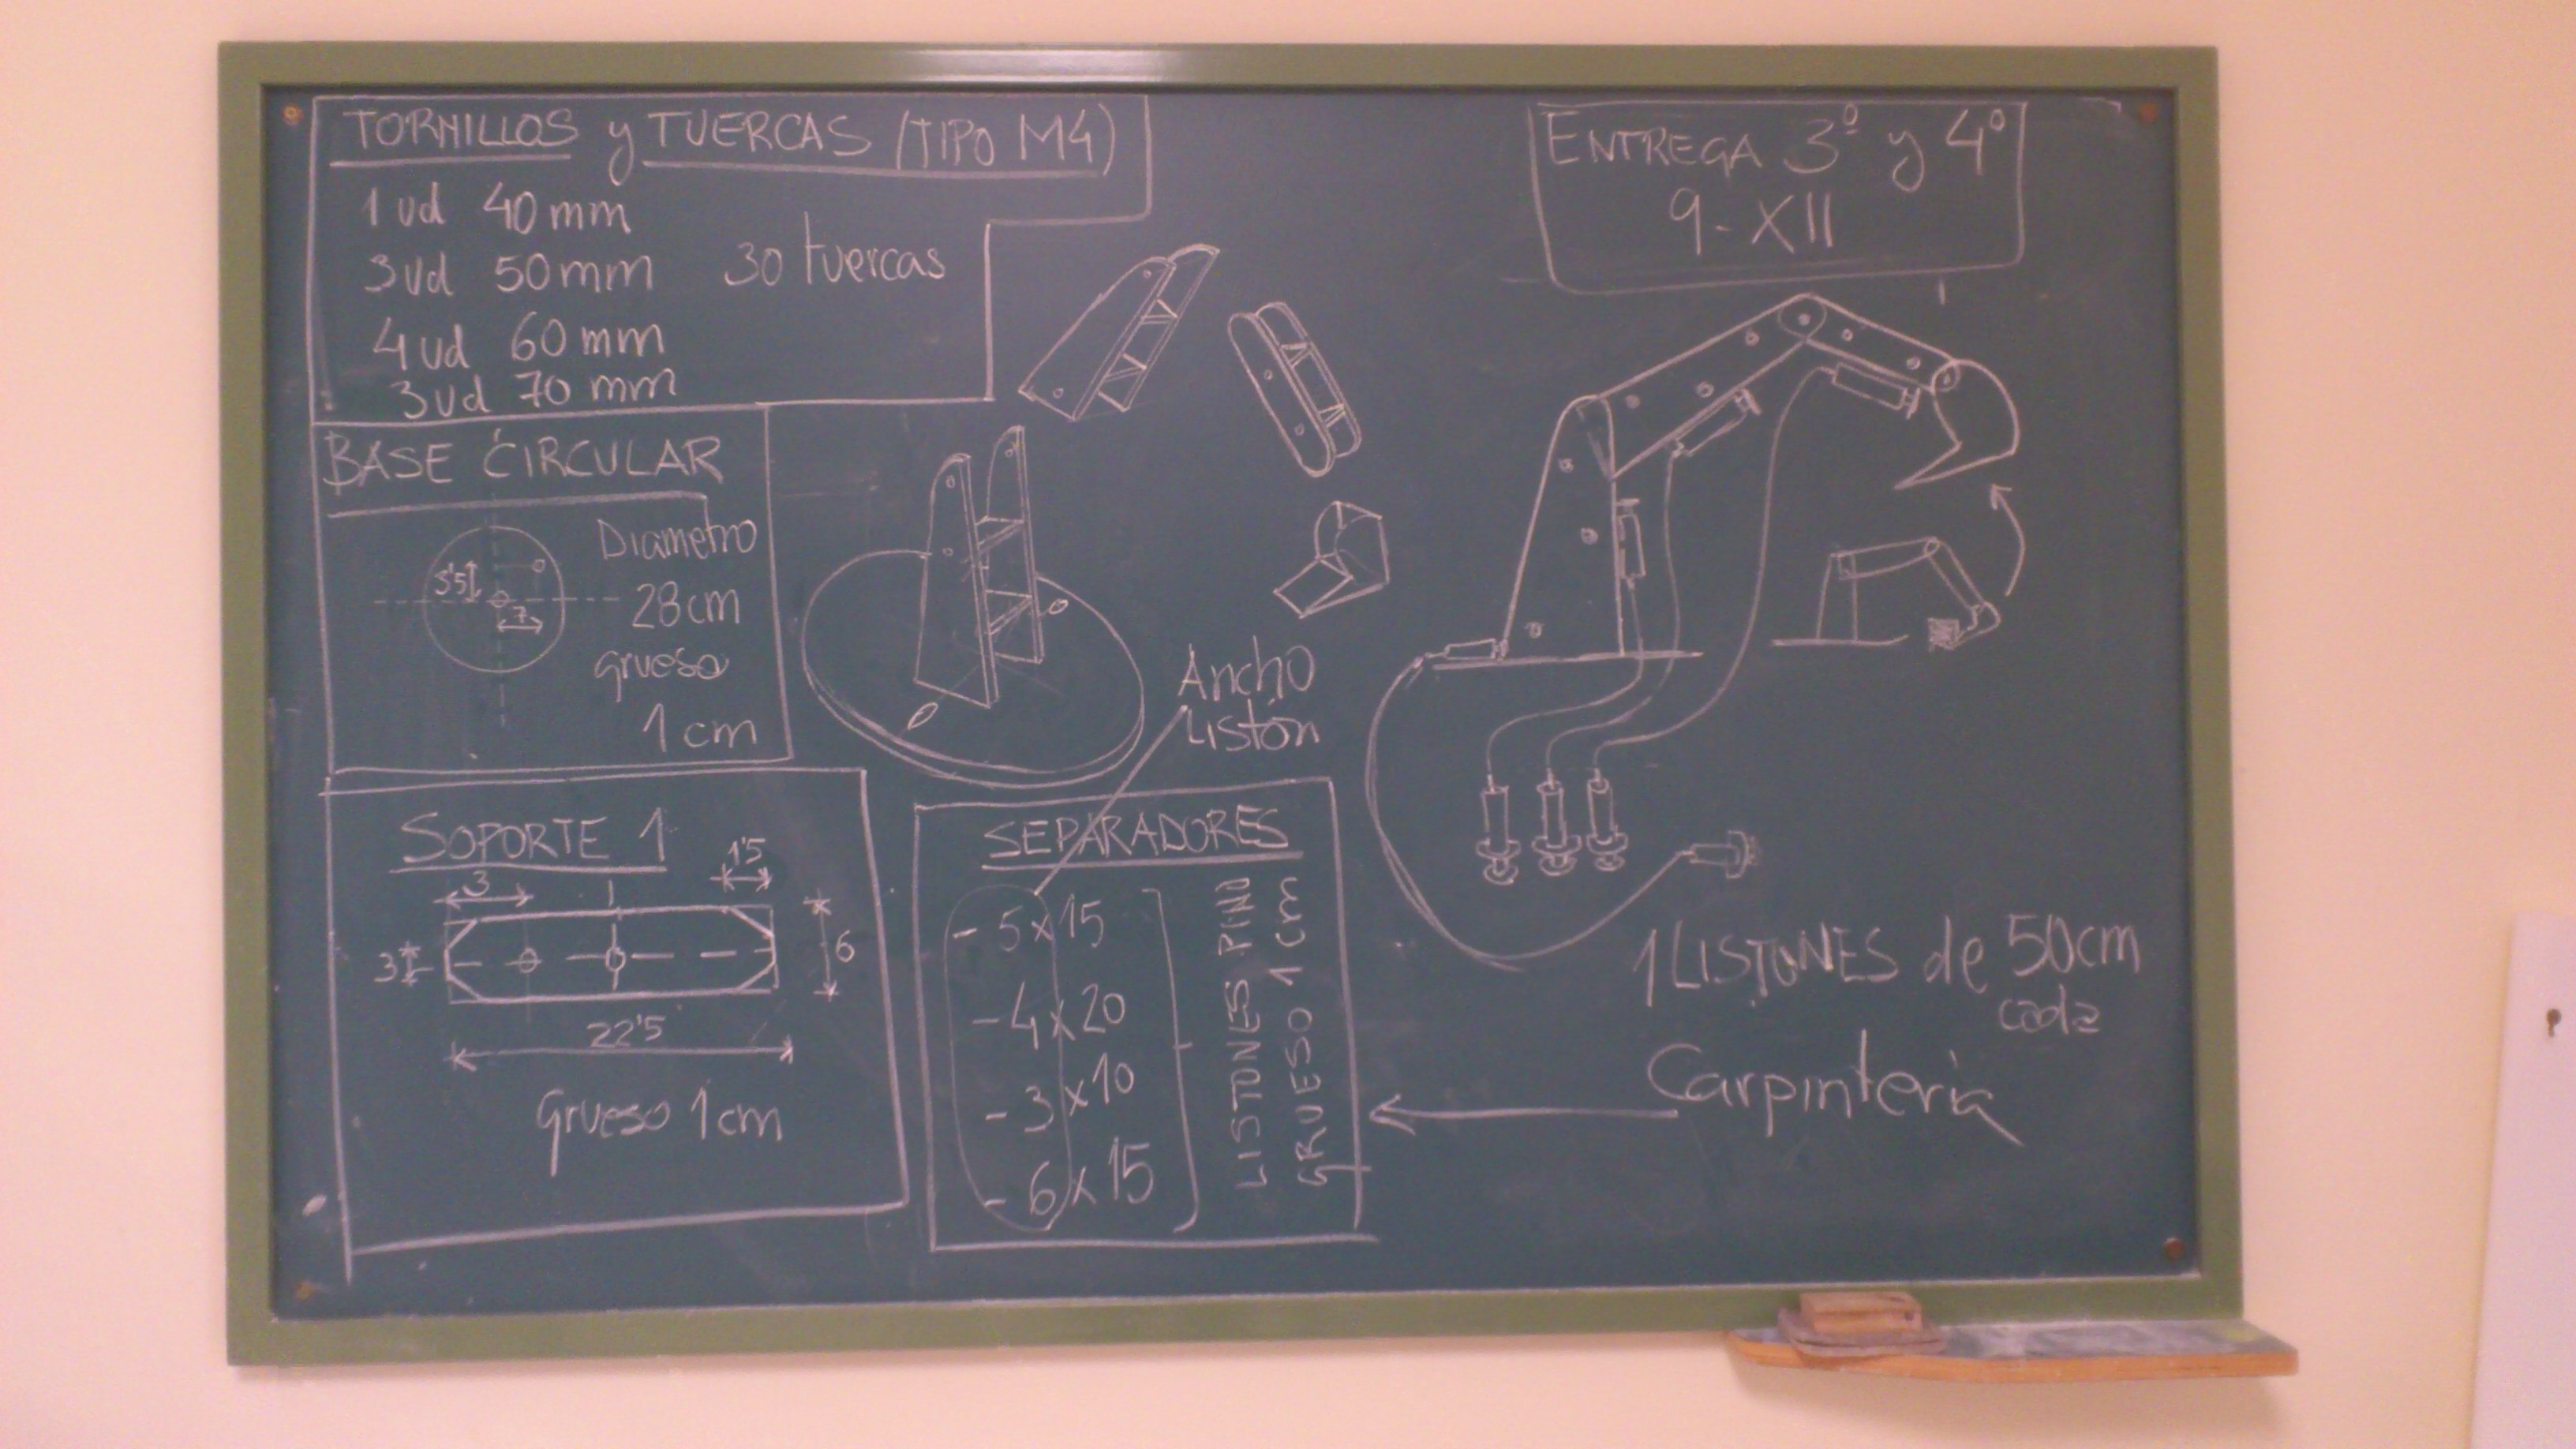 TORNILLOS y TUERCAS (TIPO M4)
1 ud 40 mm
3 ud 50 mm
30 tuercas
4 ud 60 mm
3 ud 70 mm
BASE CIRCULAR
Diametro
28 cm
grueso
1 cm
3'5
7
SOPORTE 1
3
1'5
3
6
22'5
Grueso 1 cm
Ancho
Listón
SEPARADORES
- 5x15
- 4x20
- 3x10
- 6x15
LISTONES PINO
GRUESO 1 cm
ENTREGA 3º y 4º
9-XII
1 LISTONES de 50cm
cada
Carpintería